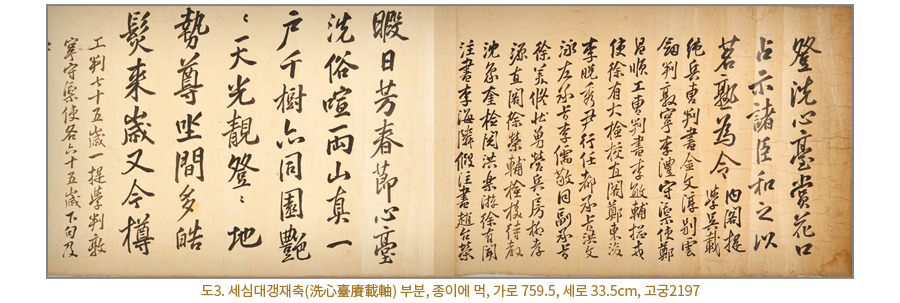 登洗心臺賞花口
占示諸臣和之以
茗熟為令 内閣提
學吳載
純兵曹判書金文淳別雲
劍判敦寧李澧守禦使鄭
昌順工曹判書李敏輔摠戎
使徐有大檢校直閣鄭東浚
李晚秀尹行任都承旨洪文
泳左承旨李儒敬同副承旨
徐美修壯勇營兵房
源直閣徐榮輔檢校待教
沈象奎檢閱洪樂游徐有聞
注書李海隣假注書趙台榮
暇日芳春節心臺
洗俗喧兩山真一
戶千樹亦同園艷
〻一天光靚登〻地
勢尊坐間多皓
髮來歲又今樽
工判七十五歲一提學判敦
寧守禦使各六十五歲下句及
도3. 세심대갱재축(洗心臺賡載軸) 부분, 종이에 먹, 가로 759.5, 세로 33.5cm, 고궁2197